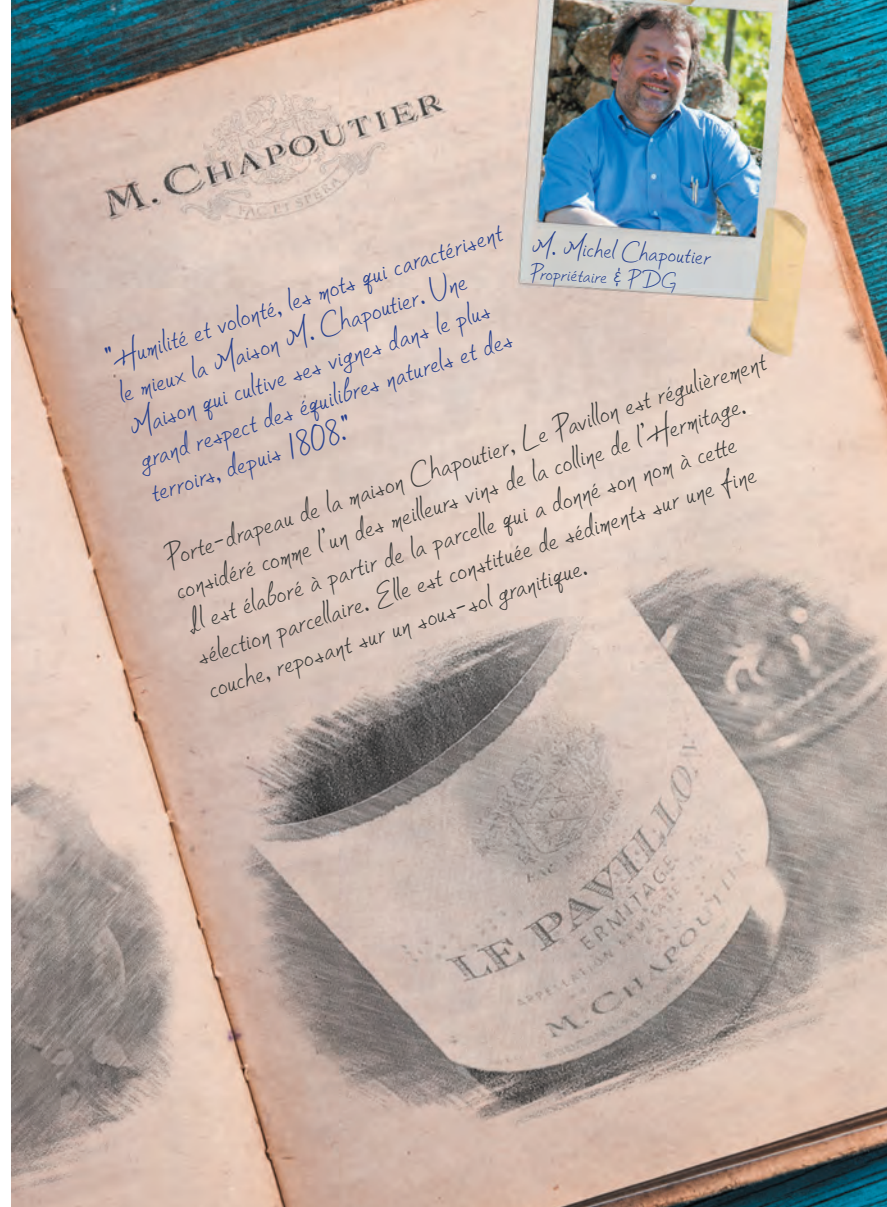 M. CHAPOUTIER
FAC ET SPERA
M. Michel Chapoutier
Propriétaire & PDG
"Humilité et volonté, les mots qui caractérisent
le mieux la Maison M. Chapoutier. Une
Maison qui cultive ses vignes dans le plus
grand respect des équilibres naturels et des
terroirs, depuis 1808."
Porte-drapeau de la maison Chapoutier, Le Pavillon est régulièrement
considéré comme l'un des meilleurs vins de la colline de l'Hermitage.
Il est élaboré à partir de la parcelle qui a donné son nom à cette
sélection parcellaire. Elle est constituée de sédiments sur une fine
couche, reposant sur un sous-sol granitique.
LE PAVILLON
ERMITAGE
APPELLATION
M. CHAPOUTIER